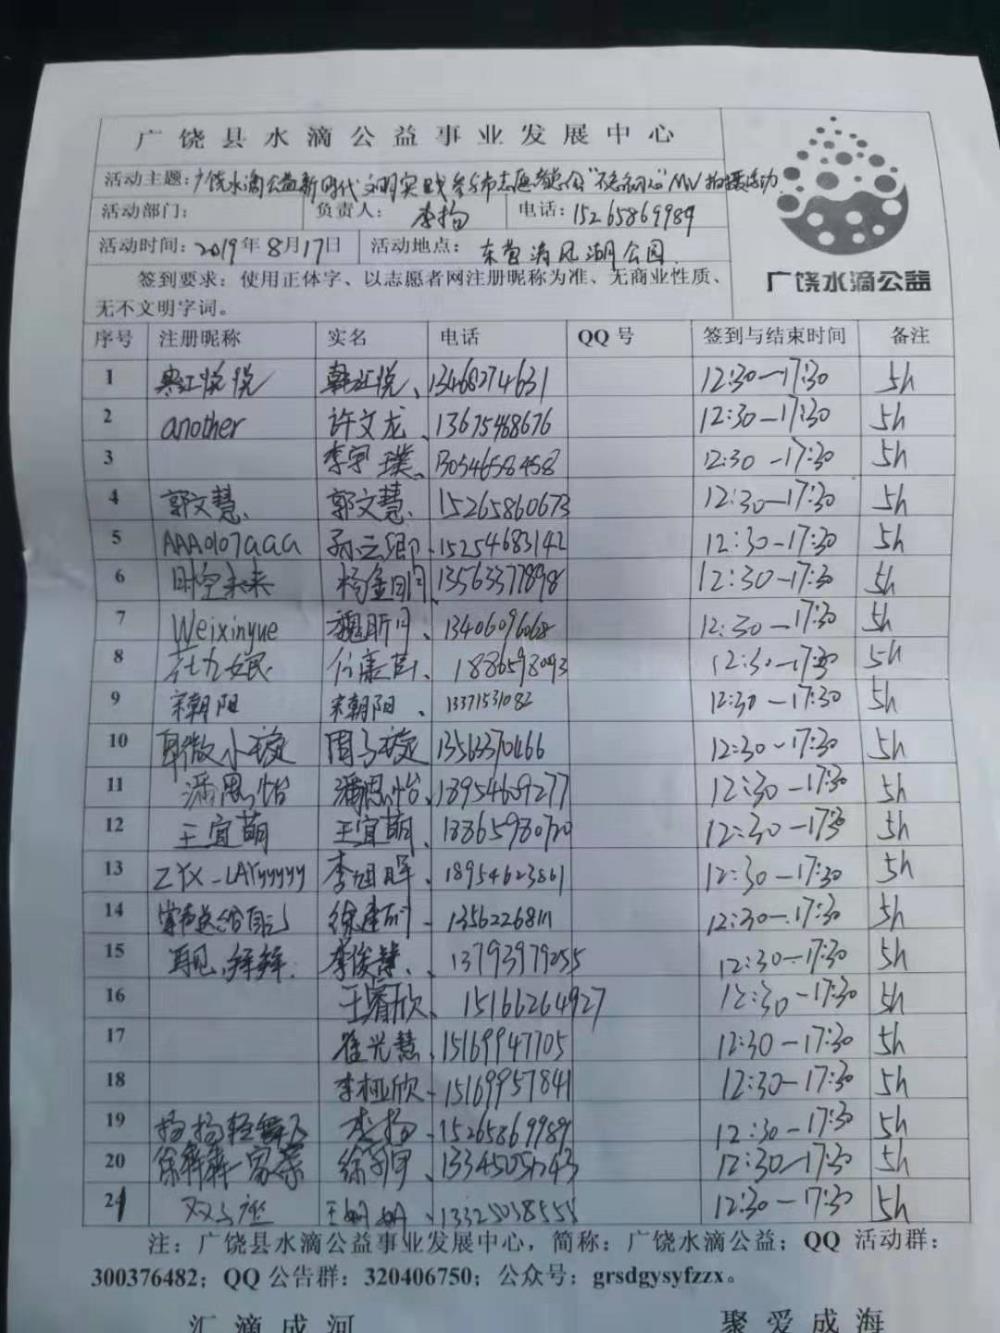 广饶县水滴公益事业发展中心
活动主题：广饶水滴公益新时代文明实践参与市志愿者总会"不忘初心"MV拍摄活动
活动部门： 负责人：李扬 电话：15265869989
活动时间：2019年8月17日 活动地点：东营清风湖公园
签到要求：使用正体字、以志愿者网注册昵称为准、无商业性质、
无不文明字词。
广饶水滴公益
序号 注册昵称 实名 电话 QQ号 签到与结束时间 备注
1 13468274631 12:30—17:30 5h
2 another 许文龙、13675468676 12:30—17:30 5h
3 李宇璞、13054658458 12:30—17:30 5h
4 郭文慧、 郭文慧、15265860673 12:30—17:30 5h
5 AAA0107aaa 15254683142 12:30—17:30 5h
6 时空未来 13563377898 12:30—17:30 5h
7 Weixinyue 13406096068 12:30—17:30 5h
8 1886598093 12:30—17:30 5h
9 宋朝阳 宋朝阳、13371531082 12:30—17:30 5h
10 13563370466 12:30—17:30 5h
11 潘思怡 潘思怡、18954609277 12:30—17:30 5h
12 王宜萌 王宜萌、18865980720 12:30—17:30 5h
13 ZYX-LAYyyyyy 李旭晖、18954623861 12:30—17:30 5h
14 1356226811 12:30—17:30 5h
15 李俊慧、13793979055 12:30—17:30 5h
16 王睿欣、15166264927 12:30—17:30 5h
17 崔光慧、15169947705 12:30—17:30 5h
18 李桠欣、15169957841 12:30—17:30 5h
19 扬扬轻舞飞 李扬、15265869989 12:30—17:30 5h
20 12:30—17:30 5h
21 双鱼座 13325038555 12:30—17:30 5h
注：广饶县水滴公益事业发展中心，简称：广饶水滴公益；QQ活动群：
300376482；QQ公告群：320406750；公众号：grsdgysyfzzx。
汇滴成河 聚爱成海